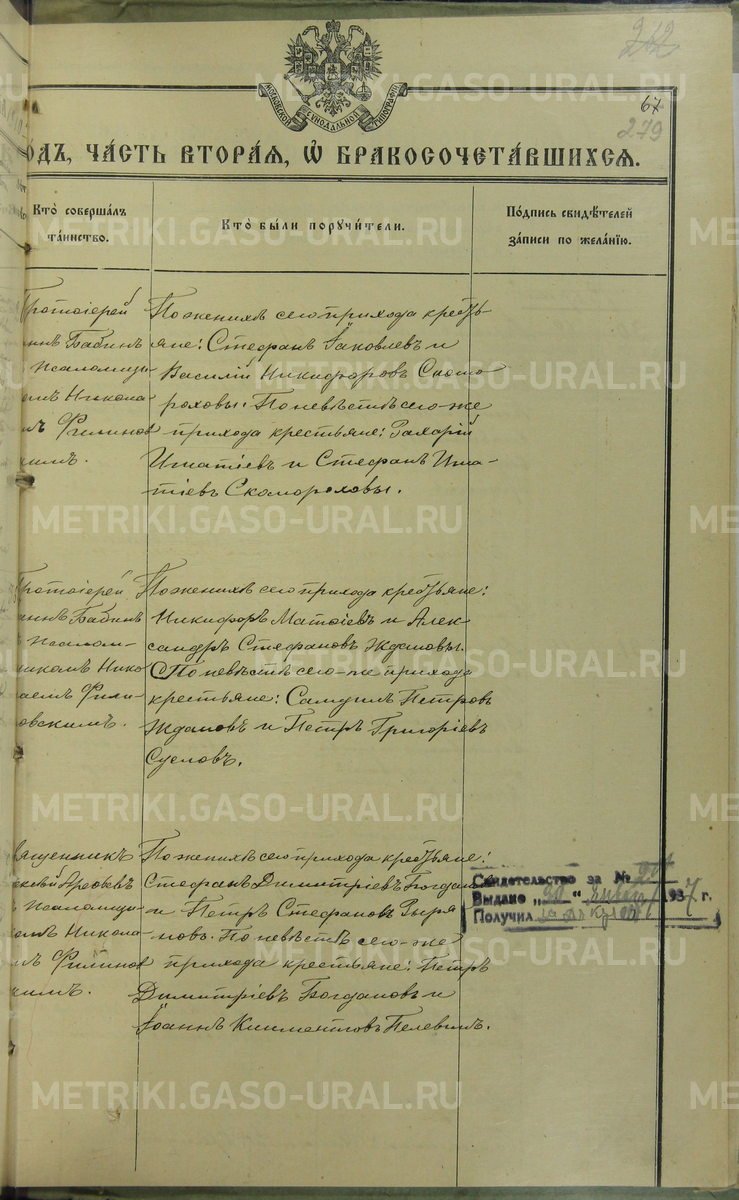 242
67
279
МОСКОВСКОЙ СѴНОДАЛЬНОЙ ТИПОГРАФІИ
ОДЪ, ЧА́СТЬ ВТОРА́Я, Ѿ БРАКОСОЧЕТА́ВШИХСЯ.
Кто̀ соверша́лъ
та́инство.
Кто̀ бы́ли поручи́тели.
По́дпись свидѣ́телей
за́писи по жела́нїю.
Протоіерей
ннъ Бабинъ
Псаломщи-
омъ Никола-
мъ Филинов
кимъ.
По женихѣ сего прихода кресть-
яне: Стефанъ Іаковлевъ и
Василій Никифоровъ Скомо
роховы: По невѣстѣ сего-же
прихода крестьяне: Захарій
Игнатіевъ и Стефанъ Игна-
тіевъ Скомороховы.
Протоіерей
аннъ Бабинъ
Псалом-
икомъ Нико
аемъ Фили-
овскимъ.
По женихѣ сего прихода крестьяне:
Никифоръ Матѳіевъ и Алек-
сандръ Стефановъ Ждановы.
По невѣстѣ сего-же прихода
крестьяне: Самуилъ Петровъ
Ждановъ и Петръ Григоріевъ
Сусловъ.
вященникъ
Псаломщи-
омъ Никола-
мъ Филинов
кимъ.
По женихѣ сего прихода крестьяне:
Стефанъ Димитріевъ Богдано
и Петръ Стефановъ Зыря
новъ: По невѣстѣ сего-же
прихода крестьяне: Петръ
Димитріевъ Богдановъ и
Іоаннъ Климентовъ Пелевинъ.
Свидетельство за №
Выдано „30“ января 1937 г.
Получил
METRIKI.GASO-URAL.RU